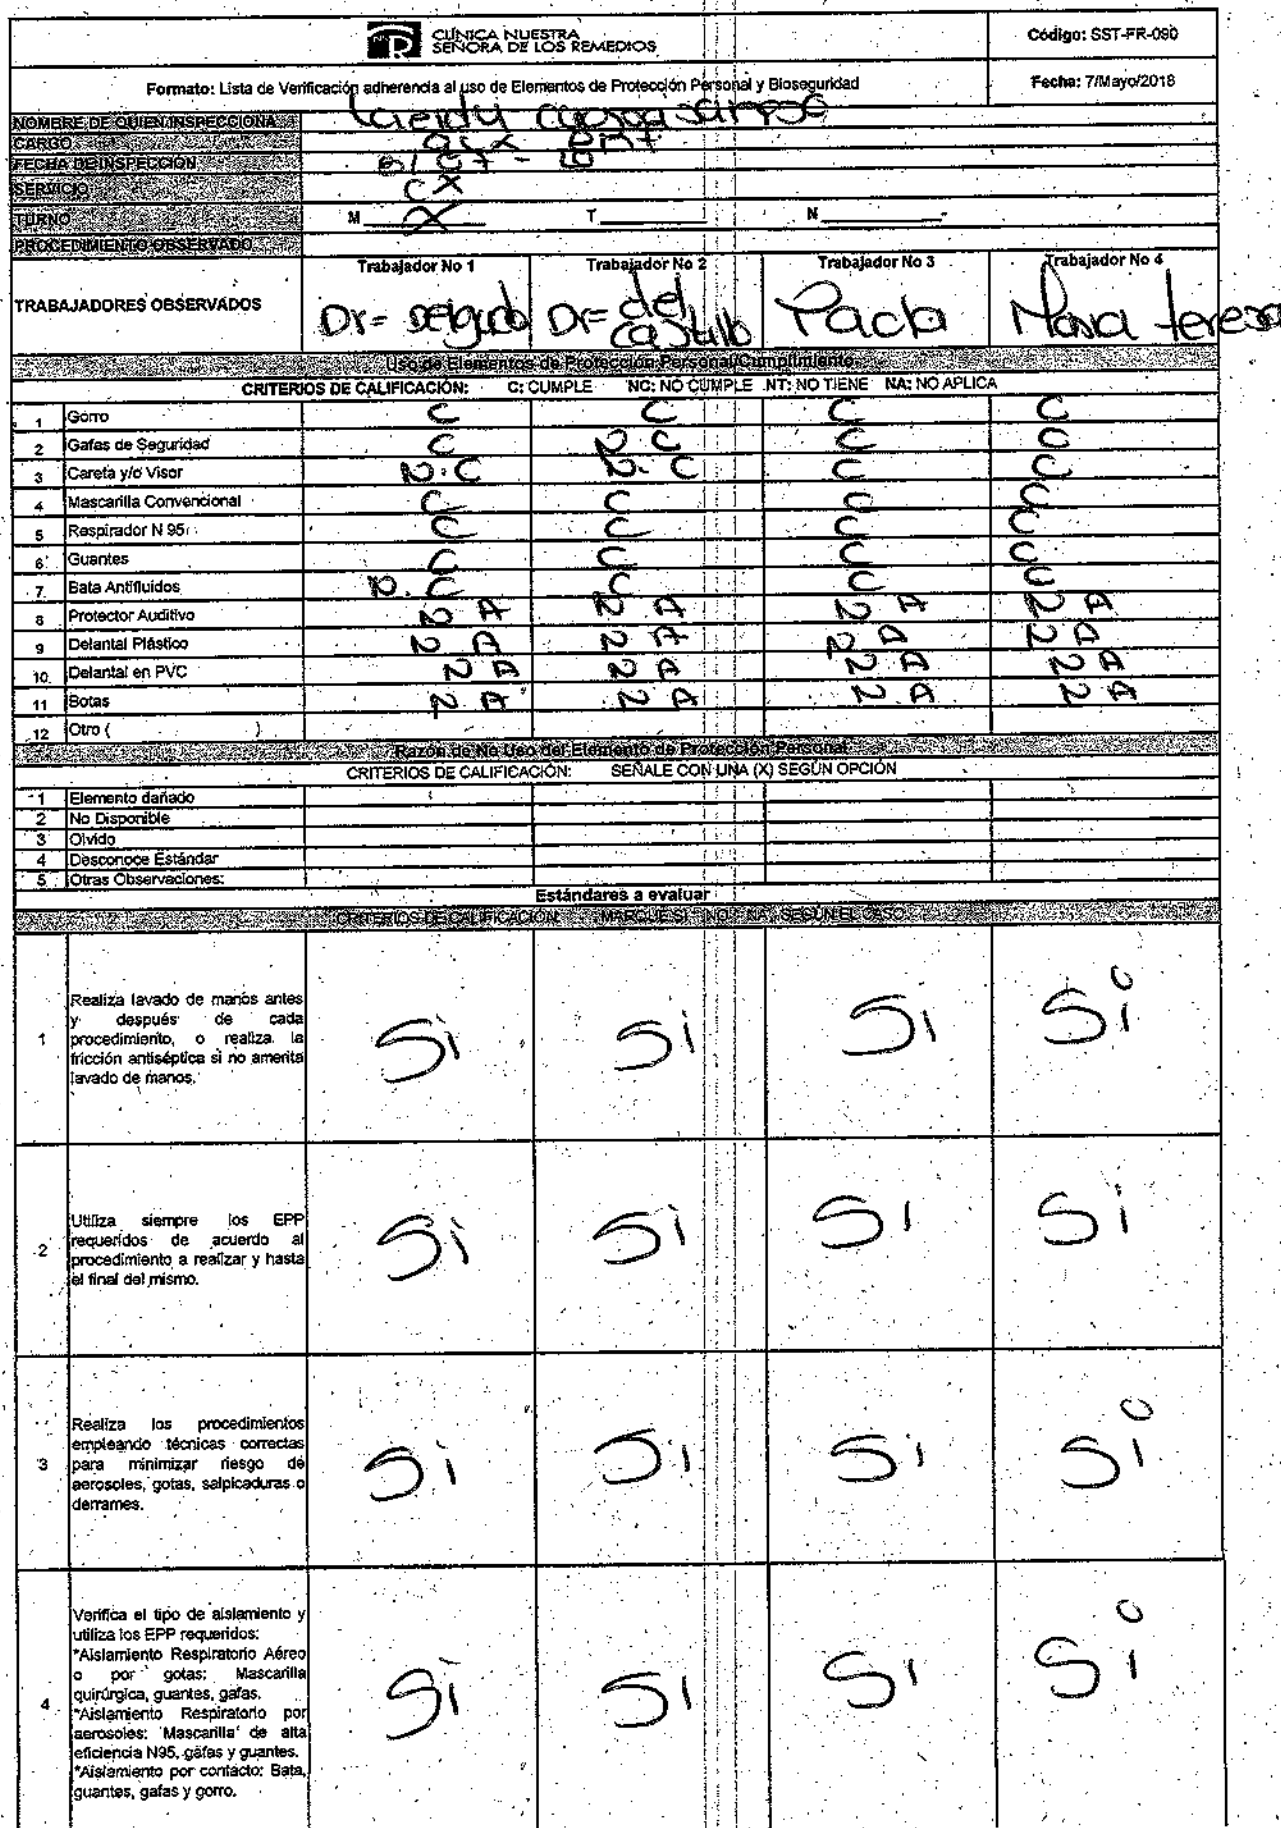 CLÍNICA NUESTRA
SEÑORA DE LOS REMEDIOS
Código: SST-FR-090
Formato: Lista de Verificación adherencia al uso de Elementos de Protección Personal y Bioseguridad
Fecha: 7/Mayo/2018
NOMBRE DE QUIEN INSPECCIONA
CARGO
FECHA DE INSPECCIÓN
SERVICIO CX
TURNO M X T N
PROCEDIMIENTO OBSERVADO
Trabajador No 1 Trabajador No 2 Trabajador No 3 Trabajador No 4
TRABAJADORES OBSERVADOS Dr= Delgado Dr= del castillo Paola Maria teresa
Uso de Elementos de Protección Personal/Cumplimiento
CRITERIOS DE CALIFICACIÓN: C: CUMPLE NC: NO CUMPLE NT: NO TIENE NA: NO APLICA
1 Gorro C C C C
2 Gafas de Seguridad C N C C C
3 Careta y/o Visor N.C N.C C C
4 Mascarilla Convencional C C C C
5 Respirador N 95 C C C C
6 Guantes C C C C
7 Bata Antifluidos N.C C C C
8 Protector Auditivo N A N A N A N A
9 Delantal Plástico N A N A N A N A
10 Delantal en PVC N A N A N A N A
11 Botas N A N A N A N A
12 Otro ( )
Razón de No Uso del Elemento de Protección Personal
CRITERIOS DE CALIFICACIÓN: SEÑALE CON UNA (X) SEGÚN OPCIÓN
1 Elemento dañado
2 No Disponible
3 Olvido
4 Desconoce Estándar
5 Otras Observaciones:
Estándares a evaluar
CRITERIOS DE CALIFICACIÓN: MARQUE SI, NO, NA, SEGÚN EL CASO
1 Realiza lavado de manos antes
y después de cada
procedimiento, o realiza la
fricción antiséptica si no amerita
lavado de manos.
Si Si Si Si
2 Utiliza siempre los EPP
requeridos de acuerdo al
procedimiento a realizar y hasta
el final del mismo.
Si Si Si Si
3 Realiza los procedimientos
empleando técnicas correctas
para minimizar riesgo de
aerosoles, gotas, salpicaduras o
derrames.
Si Si Si Si
4 Verifica el tipo de aislamiento y
utiliza los EPP requeridos:
*Aislamiento Respiratorio Aéreo
o por gotas: Mascarilla
quirúrgica, guantes, gafas.
*Aislamiento Respiratorio por
aerosoles: Mascarilla de alta
eficiencia N95, gafas y guantes.
*Aislamiento por contacto: Bata,
guantes, gafas y gorro.
Si Si Si Si